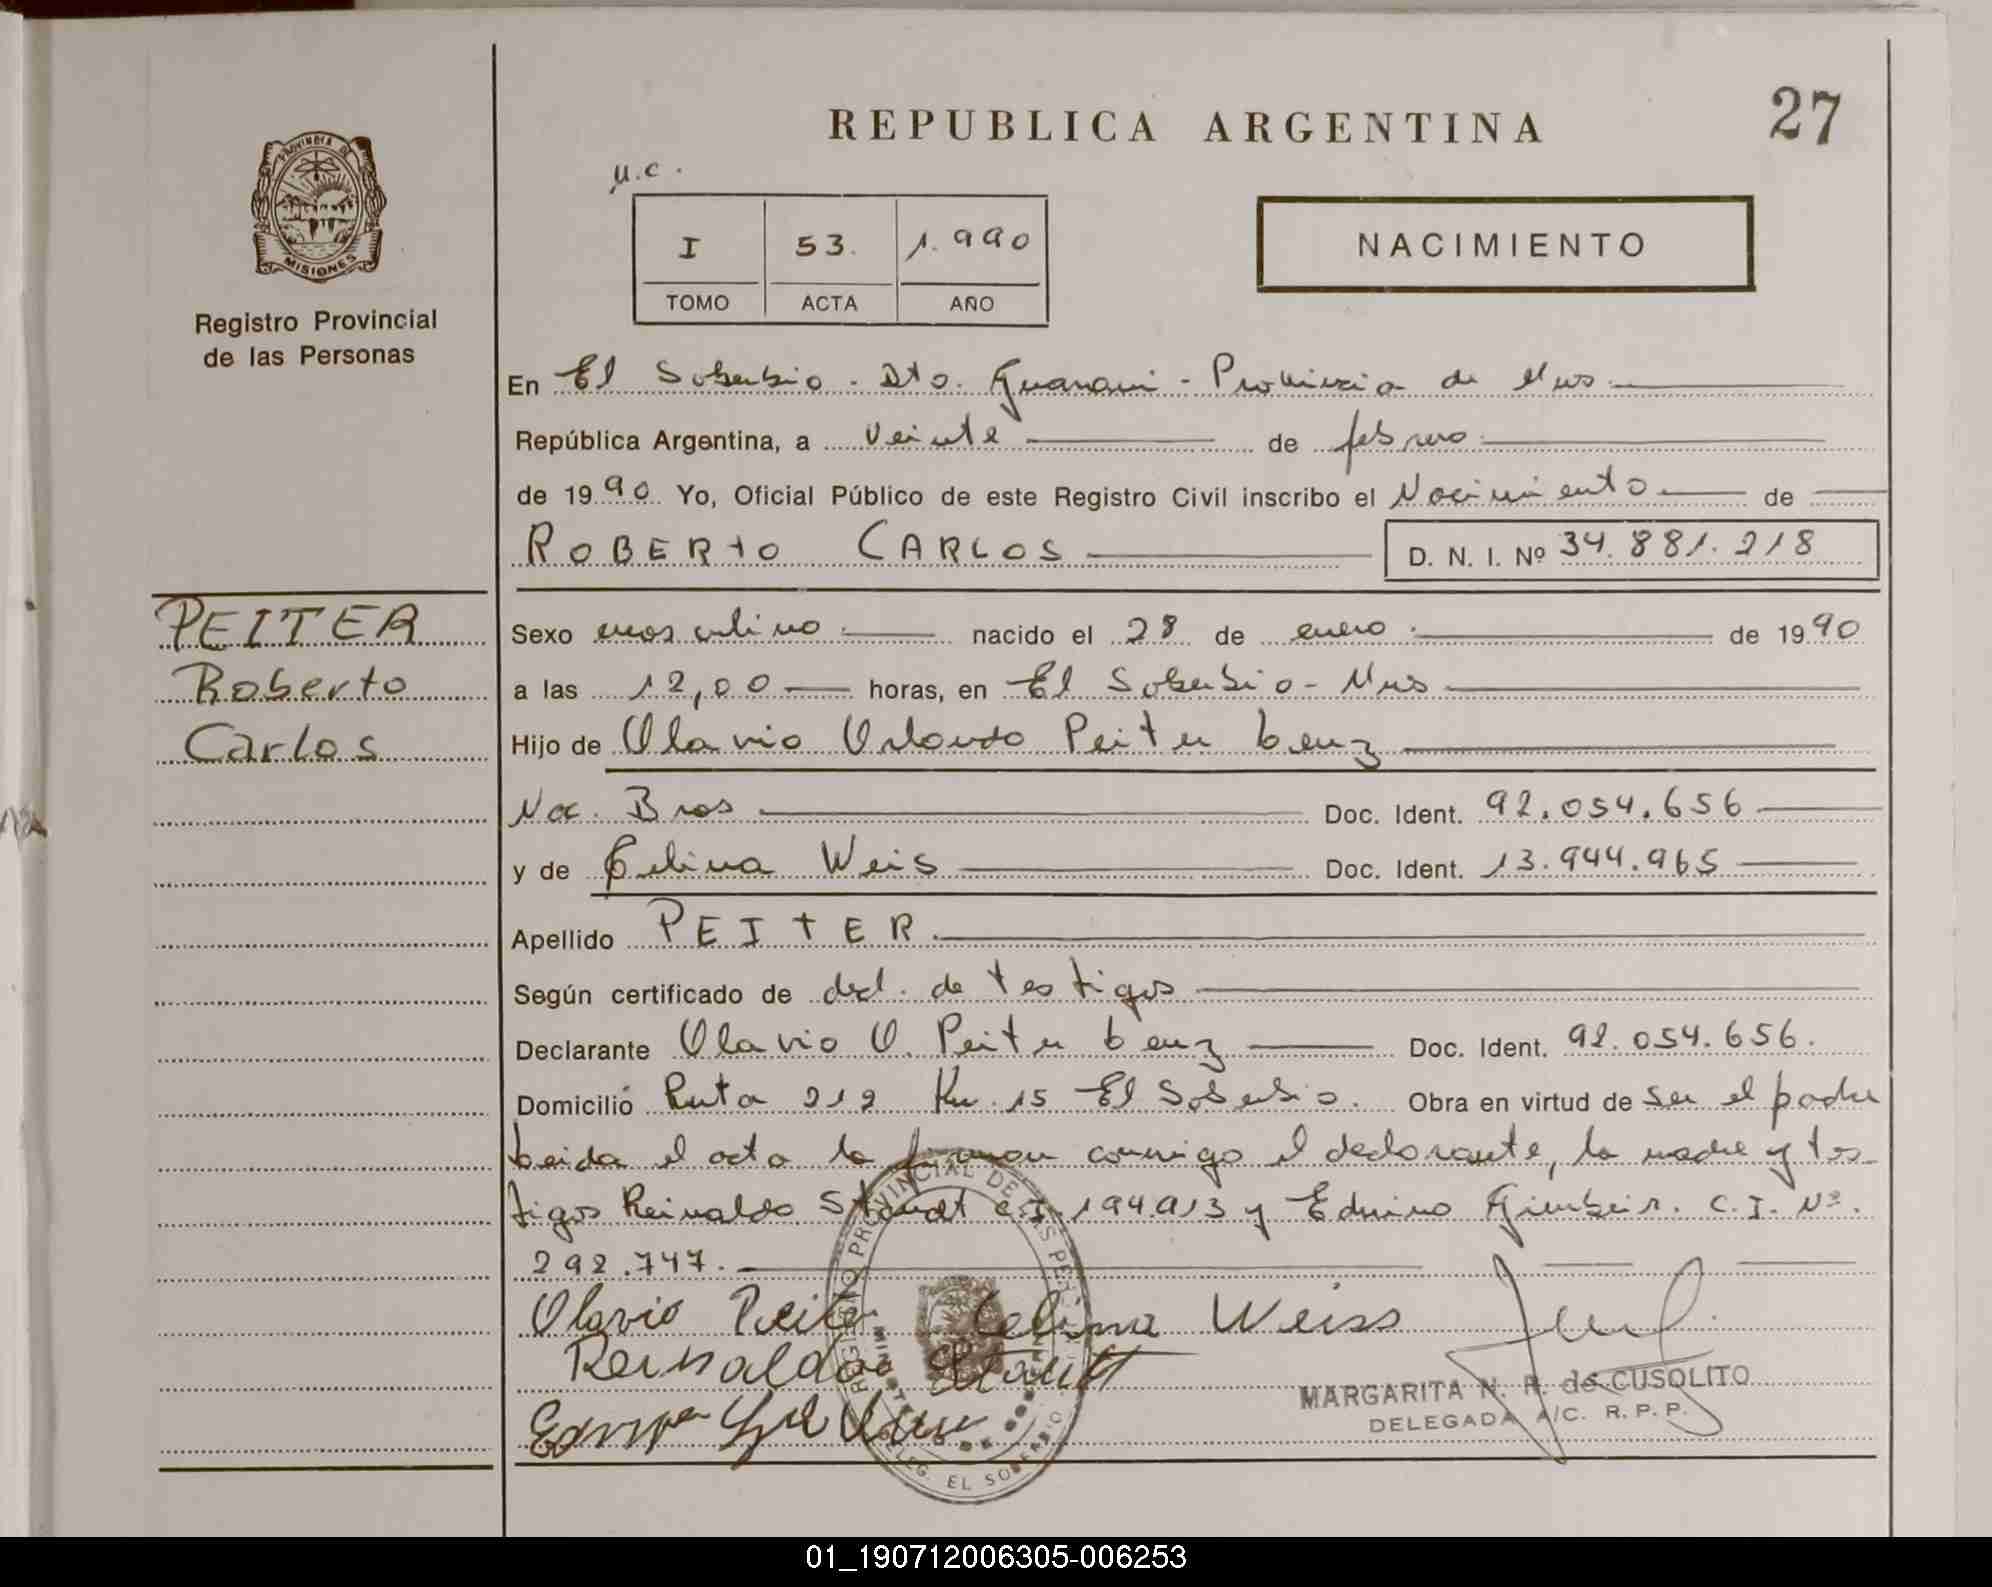 REPUBLICA ARGENTINA
27
PROVINCIA DE
MISIONES
Registro Provincial
de las Personas
I 53. 1.990
TOMO ACTA AÑO
NACIMIENTO
En El Soberbio - Dto. Guarani - Provincia de Mnes
República Argentina, a veinte de febrero
de 1990 Yo, Oficial Público de este Registro Civil inscribo el Nacimiento de
ROBERTO CARLOS D. N. I. Nº 34.881.218
PEITER
Roberto
Carlos
Sexo masculino nacido el 28 de enero de 1990
a las 12,00 horas, en El Soberbio - Mnes
Hijo de Olavio Orlando Peiter Lenz
Nac. Bras Doc. Ident. 92.054.656
y de Celina Weis Doc. Ident. 13.944.965
Apellido PEITER
Según certificado de decl. de testigos
Declarante Olavio O. Peiter Lenz Doc. Ident. 92.054.656.
Domicilio Ruta 212 Km. 15 El Soberbio. Obra en virtud de ser el padre
Leida el acta la firman conmigo el declarante, la madre y tes
tigos Reinaldo Staudt C.I. 194.913 y Edvino C.I. Nº.
292.747.
Olavio Peiter Celina Weiss
Reinaldo Staudt
MARGARITA N. R. de CUSOLITO
DELEGADA A/C. R. P. P.
REGISTRO PROVINCIAL DE LAS PERSONAS
DELEG. EL SOBERBIO
01_190712006305-006253